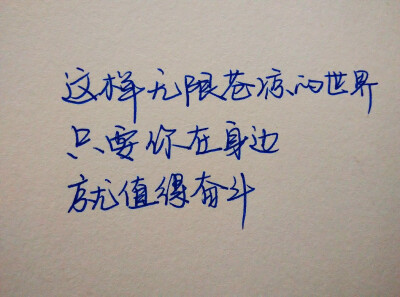 这样无限苍凉的世界
只要你在身边
就值得奋斗